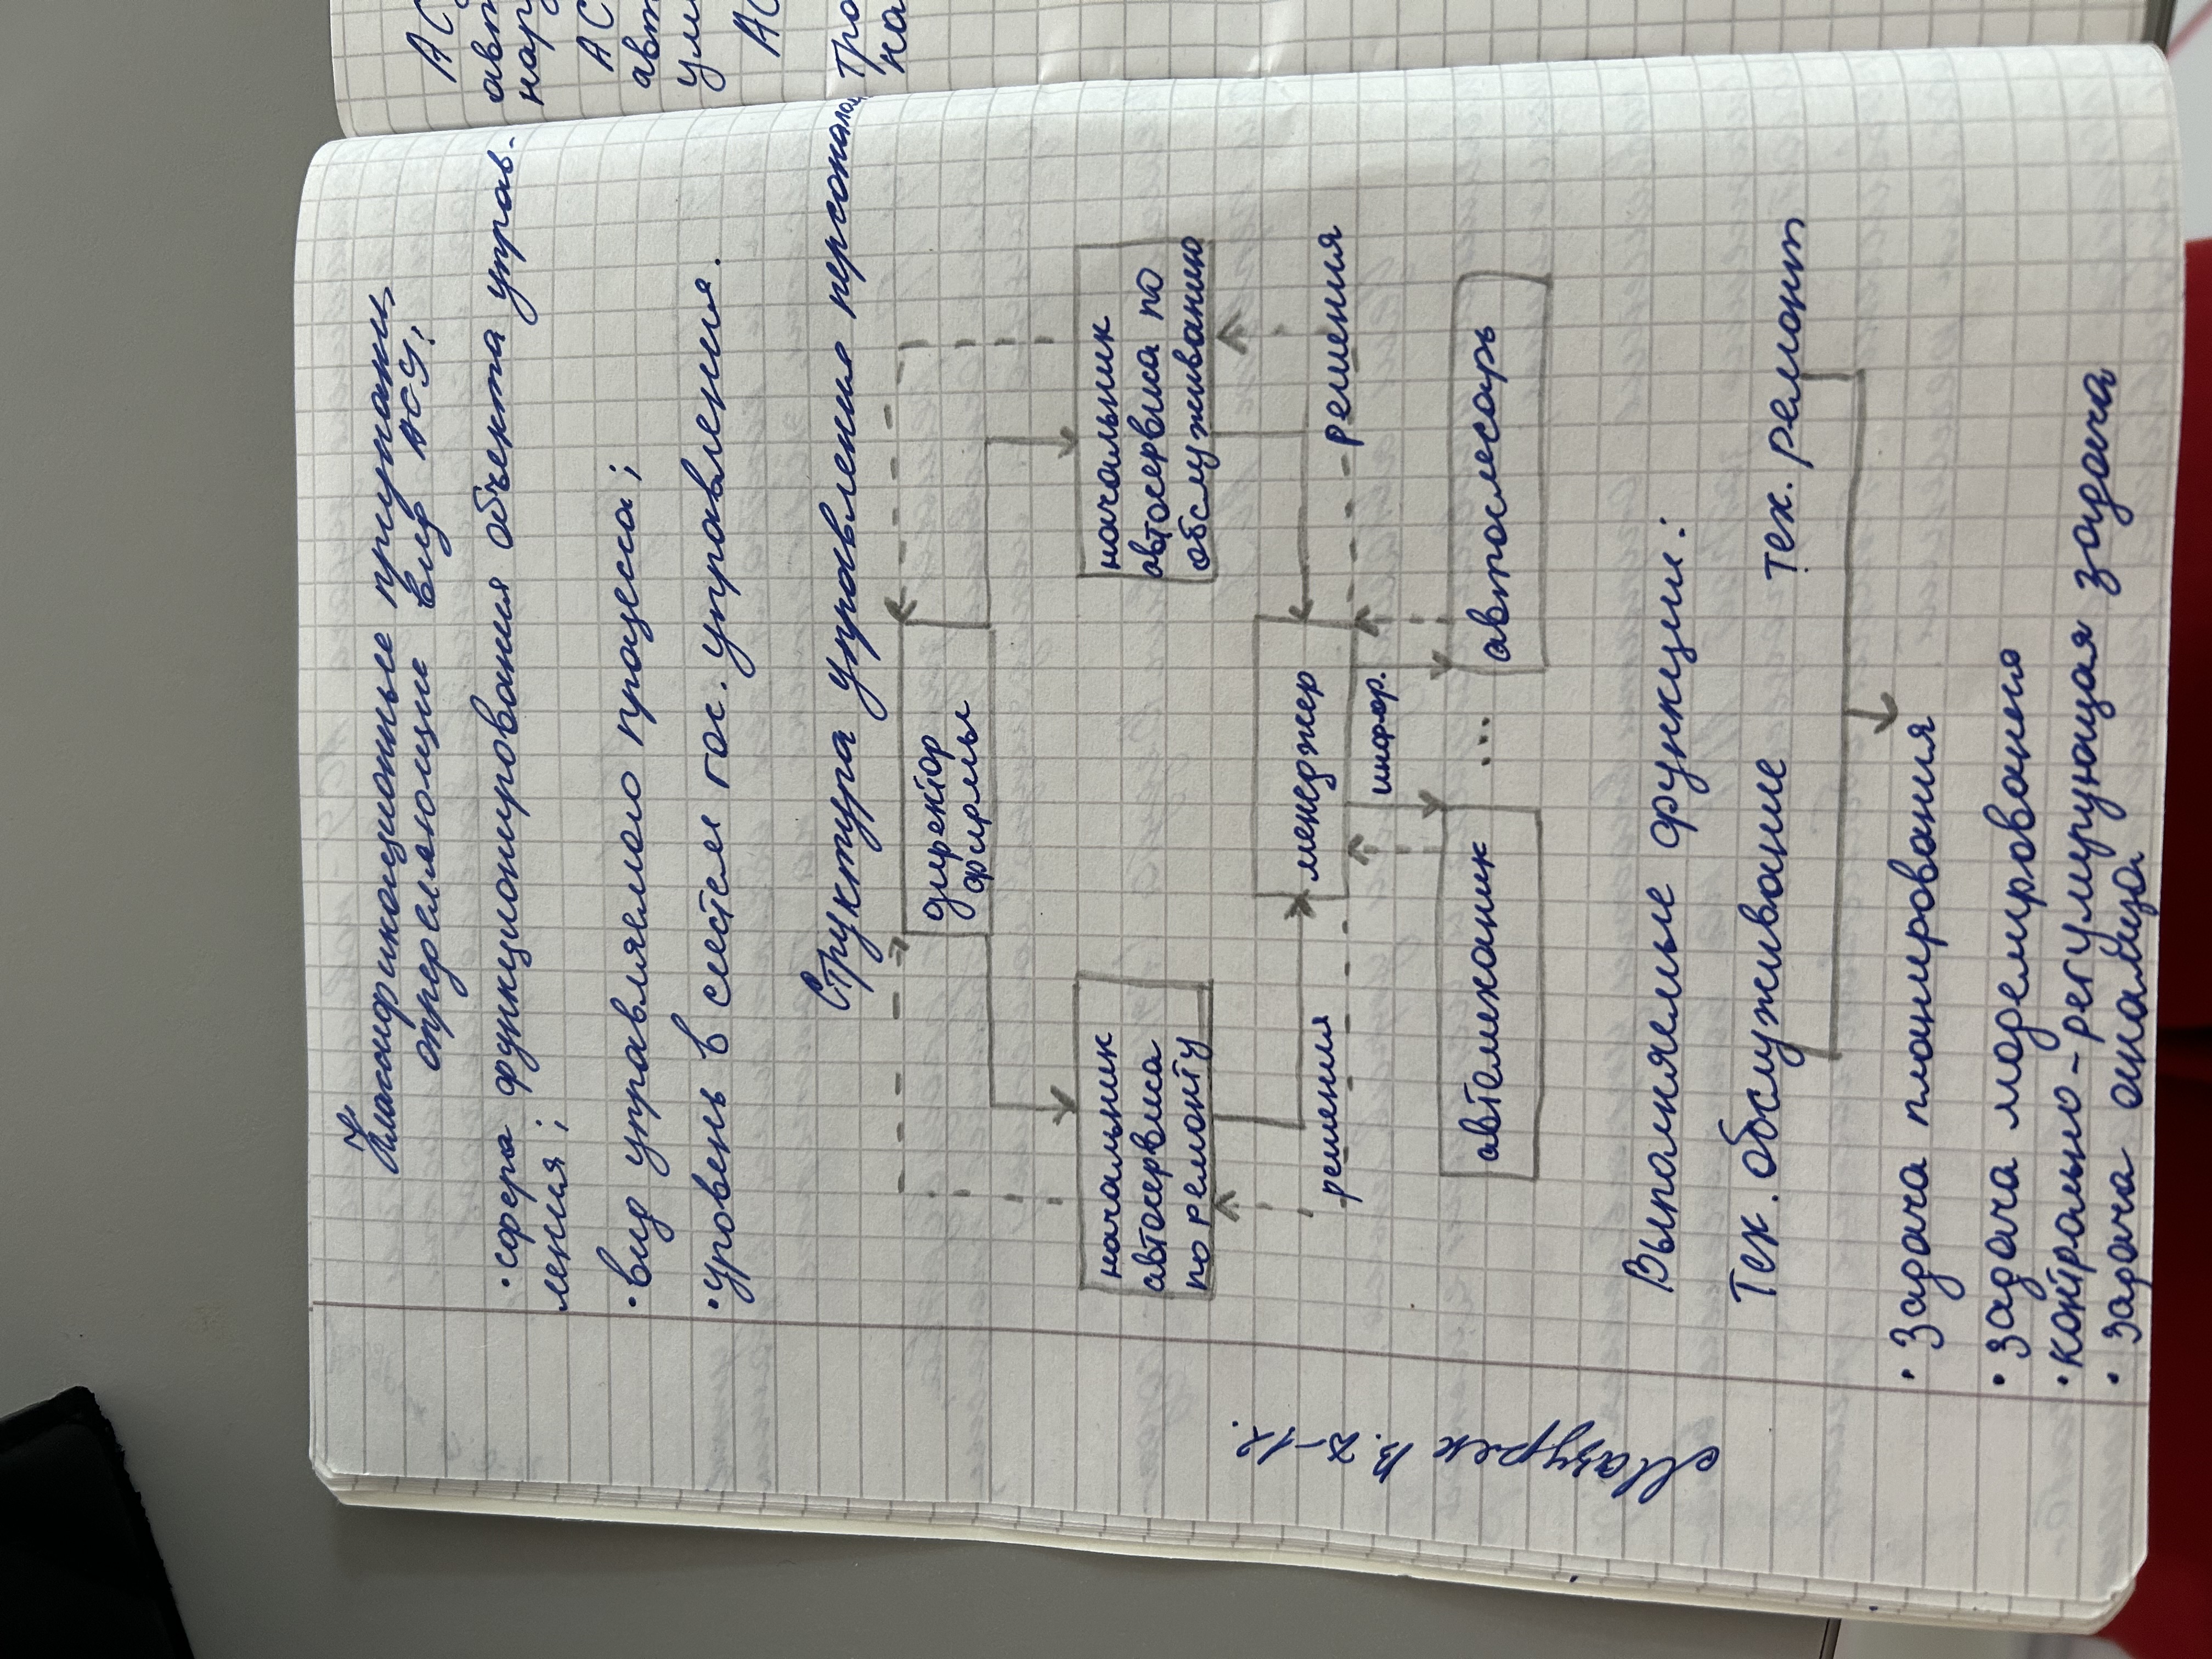 Классификационные признаки,
определяющие вид АСУ:
• сфера функционирования объекта управ-
ления;
• вид управляемого процесса;
• уровень в систем гос. управления.
Структура управления персоналом
директор
фирмы
начальник
автосервиса
по ремонту
начальник
автосервиса по
обслуживанию
менеджер
решения
решения
инфор.
автомеханик
...
автослесарь
Выполняемые функции:
Тех. обслуживание тех. ремонт
• Задача планирования
• Задача моделирования
• контрольно-регулирующая задача
• задача анализа
Мазурек В. Z-12.
АС
авт
нар
АС
авт
ули
АС
тра
на